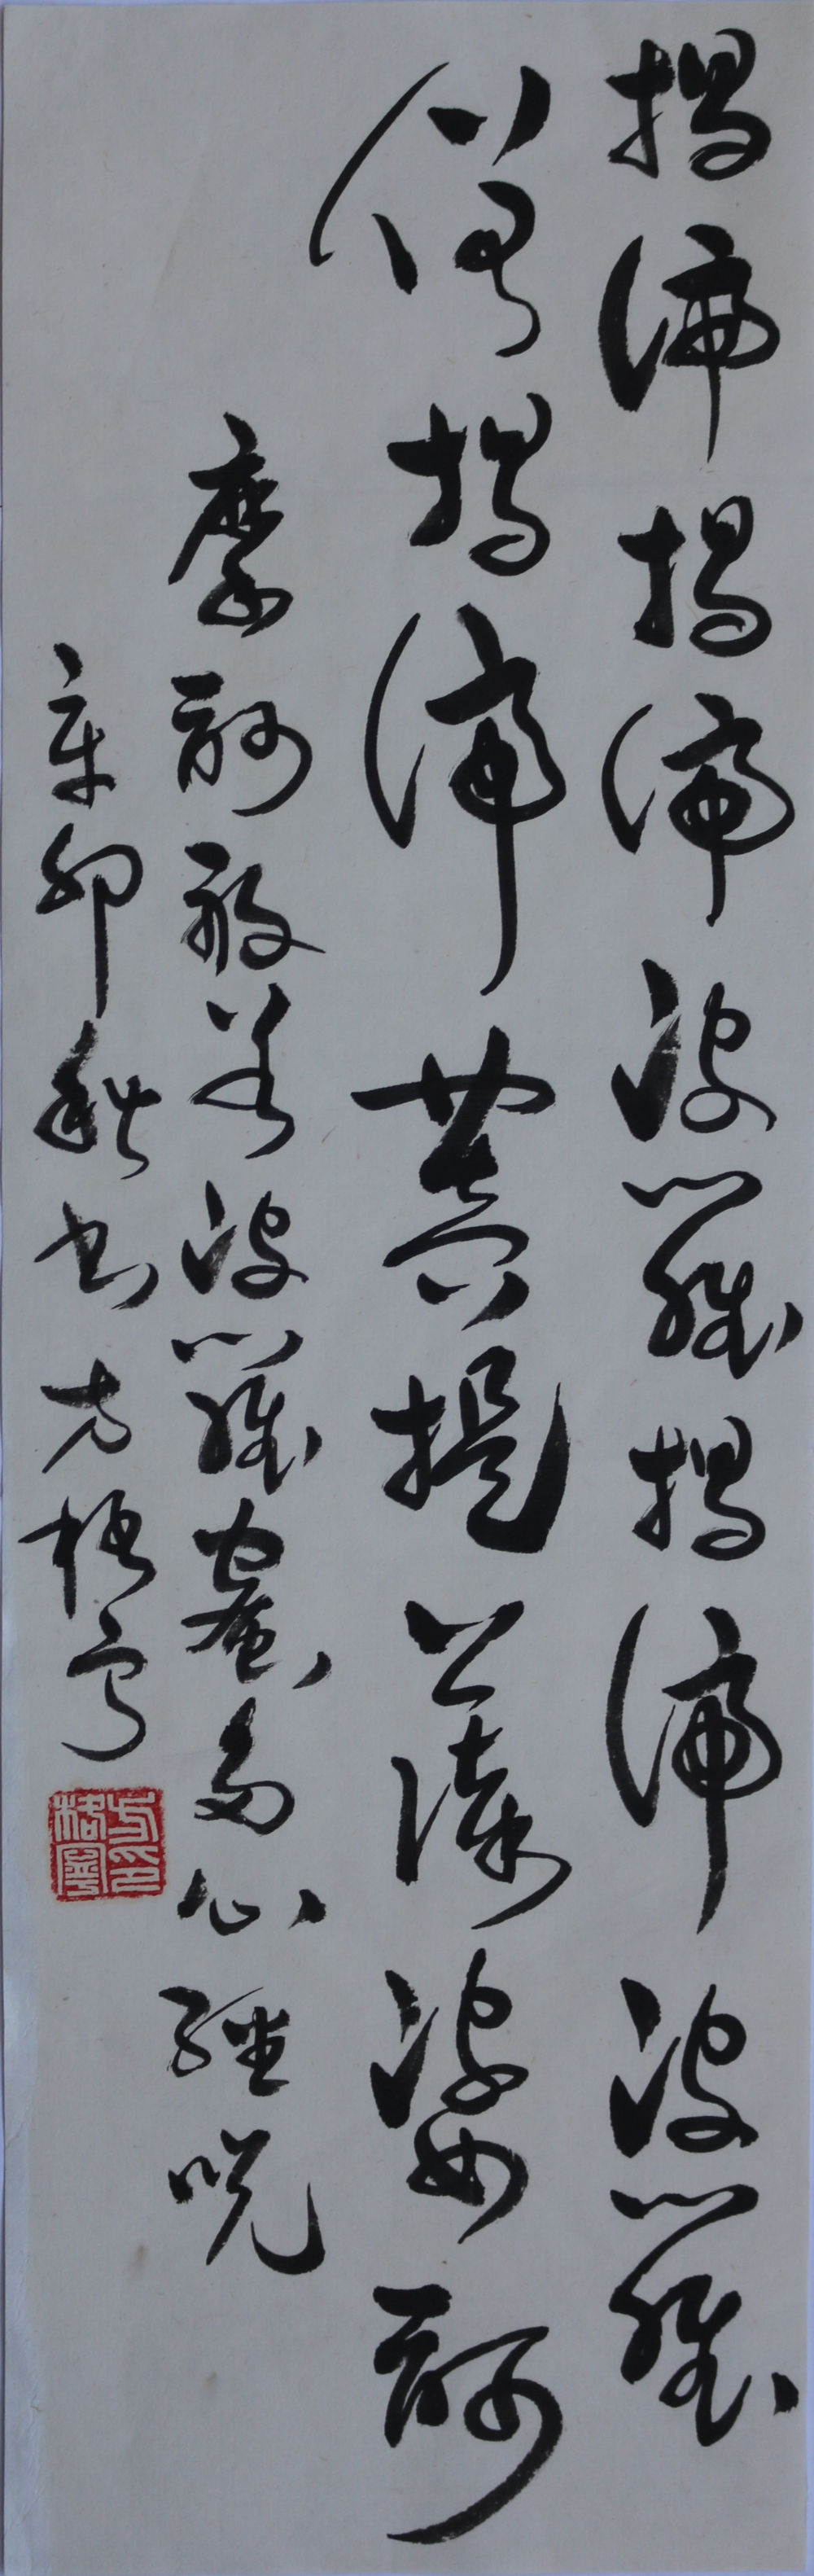 揭諦揭諦波羅揭諦波羅
僧揭諦菩提薩婆訶
摩訶般若波羅蜜多心經呪
辛卯秋書方格寧